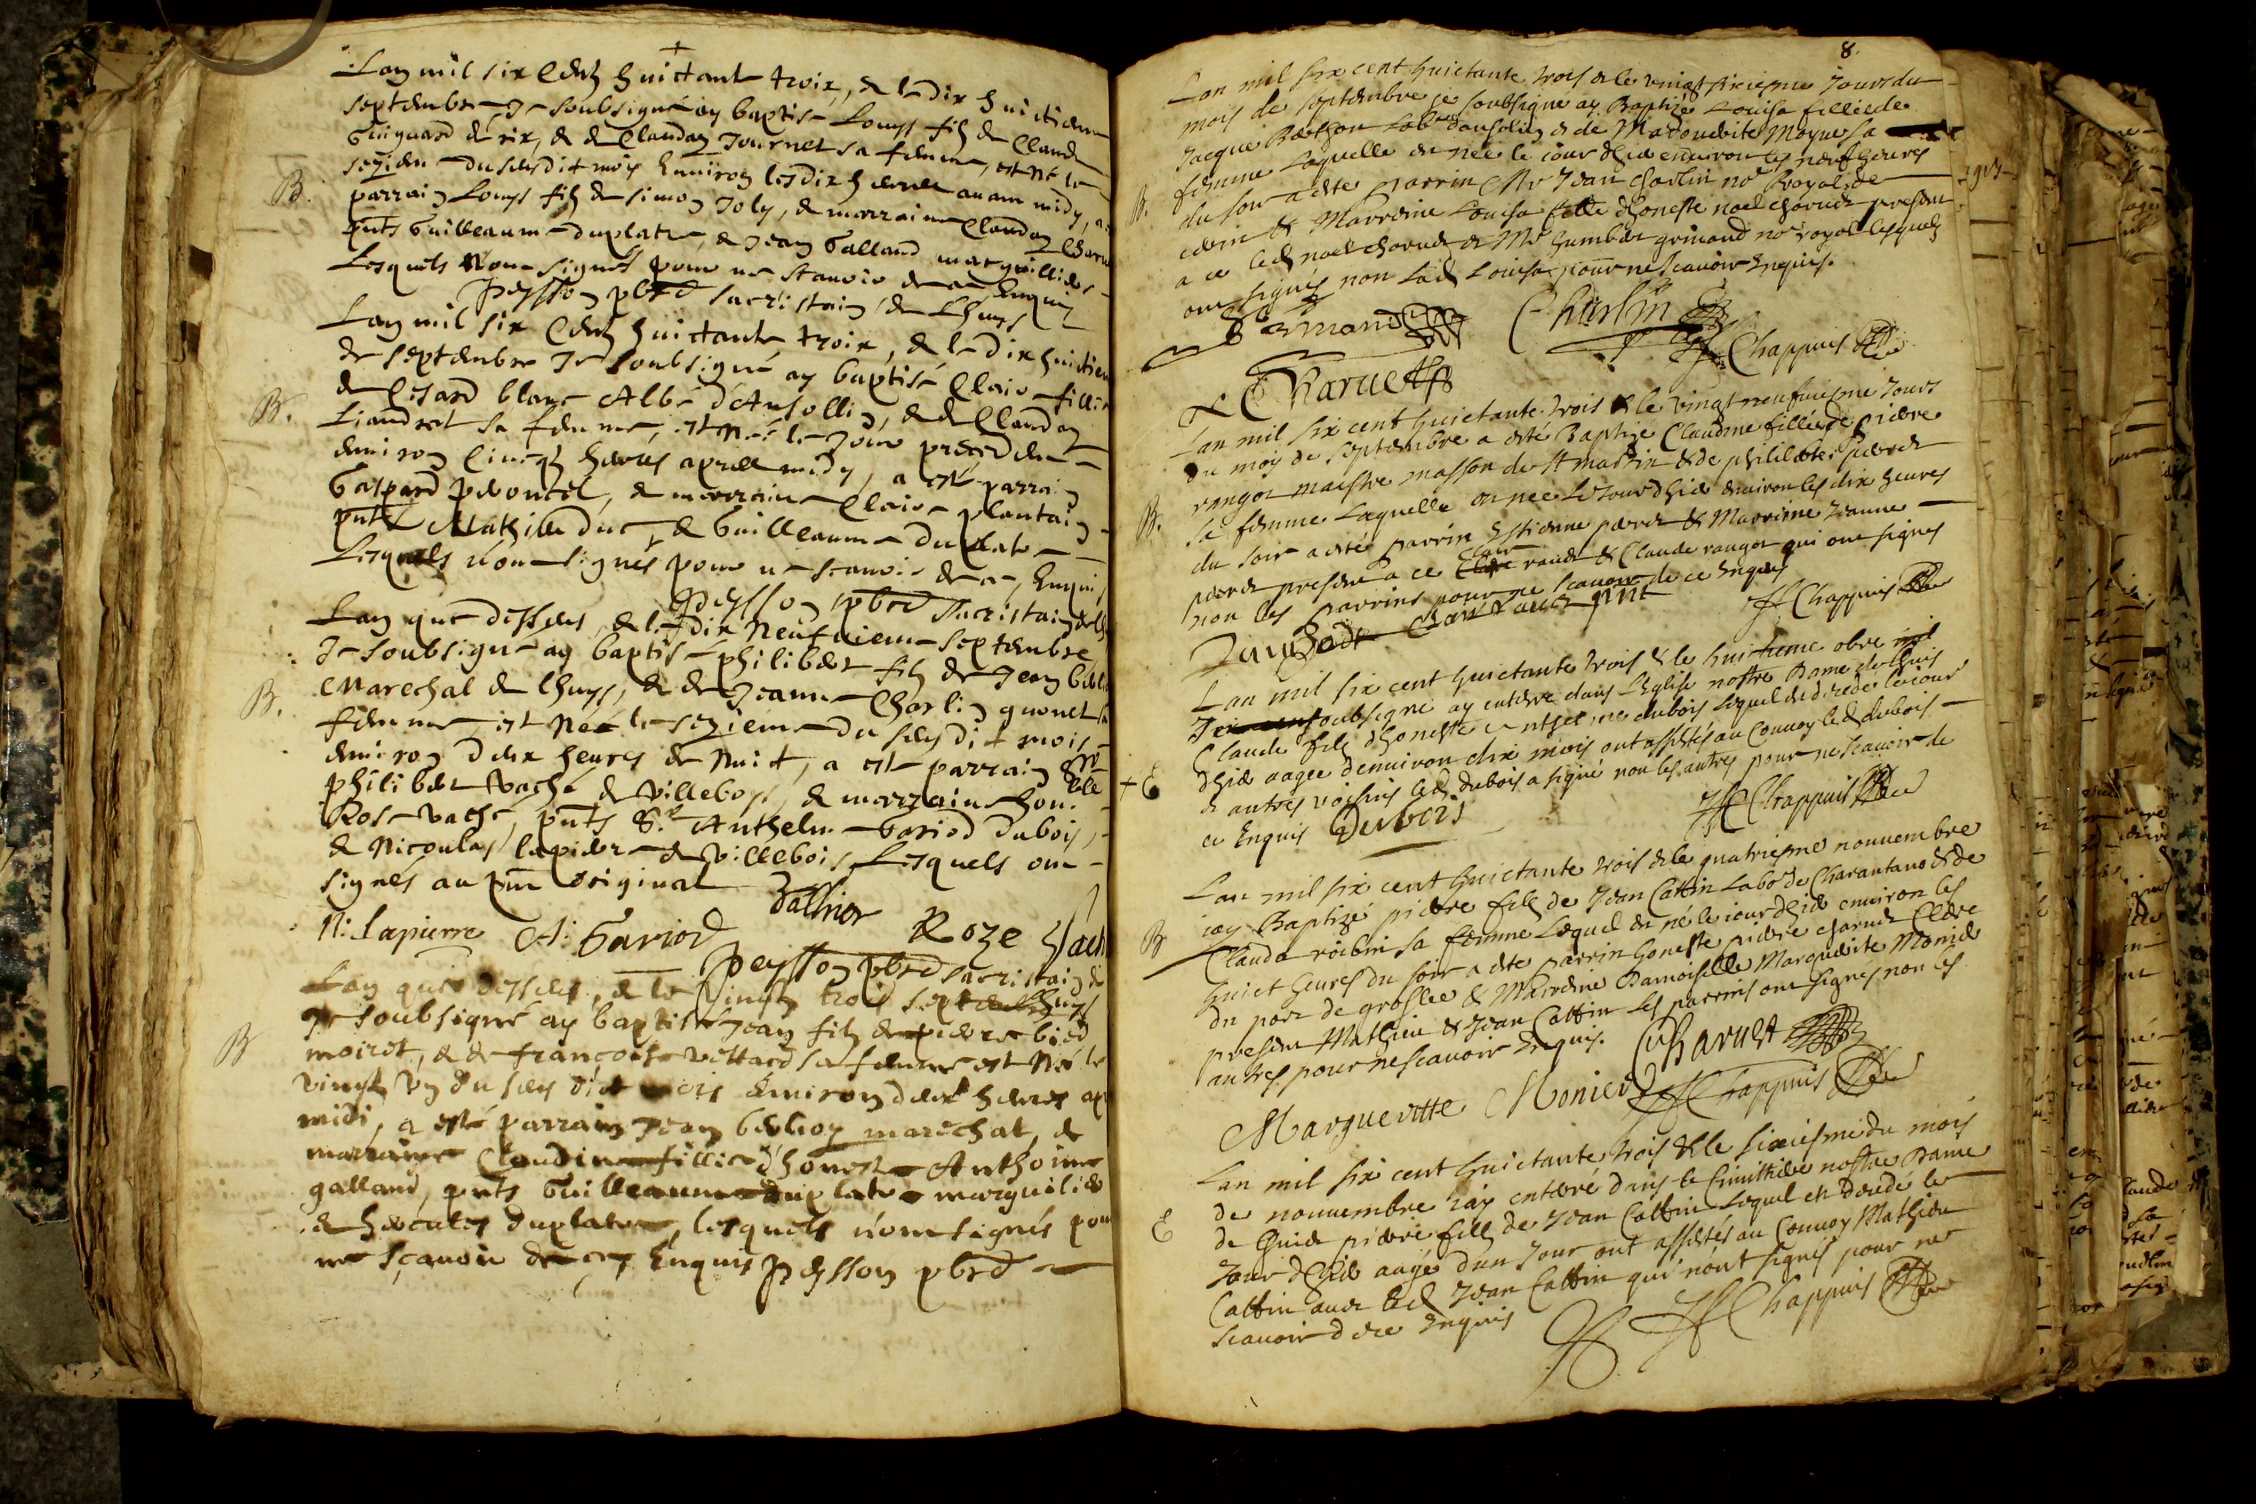 Lan mil six Centz huictante troix, & le dix huictiem
septembre Je soubsigné ay baptisé Louys filz de Claude
Guiguard de rix, & de Clauday Journet sa femme, est Né le
sezieme du susdit mois Enuiron les dix heures auant midy, a
B.
parrain Louys filz de simon Joly, & marraine Clauday
pnts Guilleaume duplatre, & Jean Galland marguilliers
Lesquels n'ont signés pour ne scauoir de ce Enquis
Peysson pbre sacristain de Lhuys
Lan mil six Centz huictante troix, & le dix huictiem
de septembre Je soubsigné ay baptisé Claire fillie
de Cesard blanc Albé d'Ansollin, & de Clauday
B.
Liandrat sa femme, est née le jour precedent
enuiron Cincq heures apres midy, a esté parrain
Gaspard peoncet, & marraine Claire plantain
pnts Mathieu duc, & Guilleaume Duplatre
Lesquels n'ont signés pour ne scauoir de ce, Enquis
Peysson pbre Sacristain de
Lan que dessus, & le dix Neufuieme septembre
Je soubsigné ay baptisé philibert filz de Jean
Marechal de Lhuys, & de Jeanne Charlin quonet sa
B.
femme est Né le sezieme du susdit mois
enuiron deux heures de Nuit, a esté parrain Sr
philibert vaché de Villeboys, & marraine hon. elle
Rose vaché, pnts Sr. Anthelme Gariod dubois,
& Nicoulas lapierre de villebois Lesquels ont
signés au pnt original
N: Lapierre A: Gariod Roze Vach
Peysson pbre sacristain de
Lhuys
Lan que dessus, & le vingt trois septembre
Je soubsigné ay baptisé Jean filz de pierre bied
B
moiret, & de françoise vettard sa femme est Né le
vingt vn du susdit mois enuiron deux heures ap
midi, a esté parrain Jean Berlioz marechal, &
marraine Claudine fillie d'honeste Anthoine
galland, pnts Guilleaume duplatre marguilier
& hercules duplatre, lesquels n'ont signés pour
ne sçauoir de ce, Enquis Peysson pbre
8.
Lan mil six cent huictante trois & le vingt sixiesme Jours du
mois de septembre je soubsigne ay Baptize Louisa filliede
Jacque Berthon Labr dansolin & de Madoudite Moyne sa
femme Laquelle est née le iour dhier enuiron les neuf heures
B.
du soir a este parrin Mr Jean Charlin nore Royal de
cerin & Marreine Louisa fille dhoneste noel charuet present
a ce led noel charuet & Mr humbert grimand nore royal lesquelz
ont signés non lad Louisa pour ne scauoir Enquis.
Charlin
Chappuis
Charuet
Lan mil six cent huictante trois & le vingt neufuiesme Jours
du mois de septembre a esté Baptize Claudine filliede pierre
rangot maistre masson de St martin & de phililiberte pierret
B.
sa femme Laquelle est née Le Jour dhier enuiron les dix heures
du soir a esté parrin Estienne pierret & Marrine Jeanne
pierret present a ce Clair raudet & Claude rangot qui ont signes
non les parrins pour ne scauoir de ce Enquis
Chappuis
Lan mil six cent huictante trois & le huictieme obre
Je soubsigne ay enterré dans Leglise nostre Dame de lhuis
Claude filz dhoneste Anthelme dubois Lequel est decedé le iour
dhier aagee denuiron dix mois ont assistés au Conuoy led dubois
+ E
& autres voisins led dubois a signé non les autres pour ne scauoir de
ce Enquis Dubois
Chappuis
Lan mil six cent huictante trois & le quatriesme nouuembre
iay Baptizé pierre filz de Jean Cattin Labor de Charantano & de
B
Clauda roibin sa femme Lequel est né le iour dhier enuiron les
huict heures du soir a este parrin honeste pierre charuet Clerc
du port de groslee & Marreine Damoiselle Marguerite Monier
present Mathieu & Jean Cattin Les parrins ont signes non les
autres pour ne scauoir Enquis. Charuet
Margueritte Monier Chappuis
Lan mil six cent huictante trois & le sixiesme du mois
de nouuembre iay enterré dans le Cimithiere nostre Dame
E
de lhuis pierre filz de Jean Cattin Lequel est decedé le
Jour dhier aagé dun Jour ont assistés au Conuoy Mathieu
Cattin auec led Jean Cattin qui nont signés pour ne
scauoir de ce Enquis
Chappuis